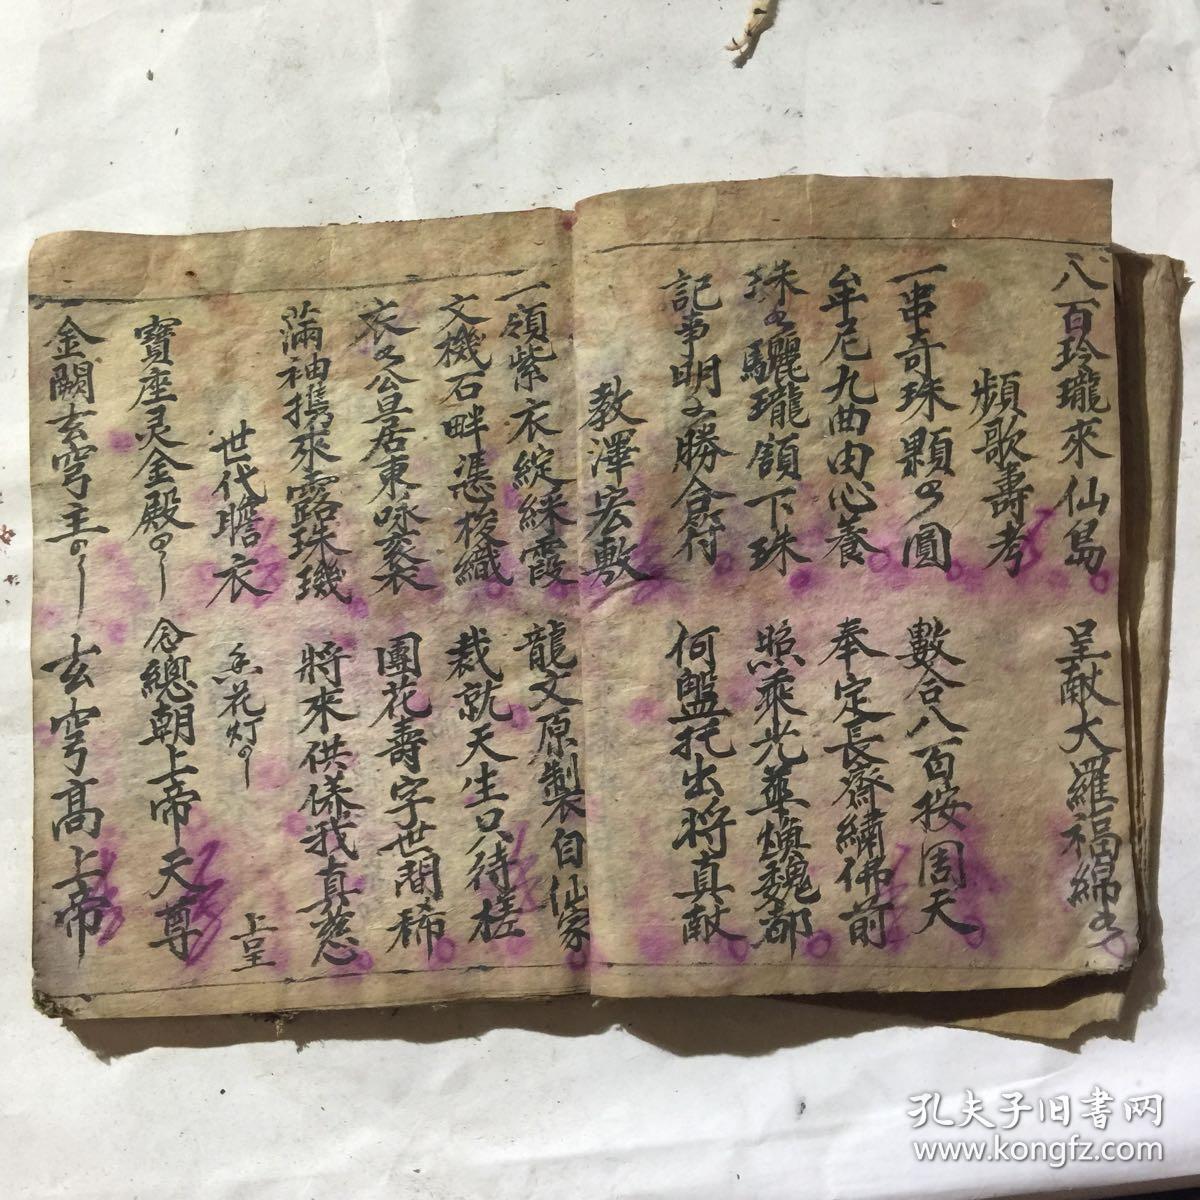 八百玲瓏來仙島 呈献大羅福綿々
頻歌壽考
一串奇珠顆々圓 數合八百按周天
牟尼九曲由心養 奉定長齋繡佛前
珠々驪瓏頷下珠 照乘光華煥魏都
記事明々勝合符 何盤托出將真献
教澤宏敷
一領紫衣綻綵霞 龍文原製自仙家
文機石畔憑梭織 裁就天生只待槎
衣々公旦居東咏袞衣 團花壽字世間稀
滿袖携來露珠璣 將來供養我真慈
世代瞻衣 香花灯 上呈
寶座灵金殿 念總朝上帝天尊
金闕玄穹主 玄穹高上帝
孔夫子旧书网
www.kongfz.com